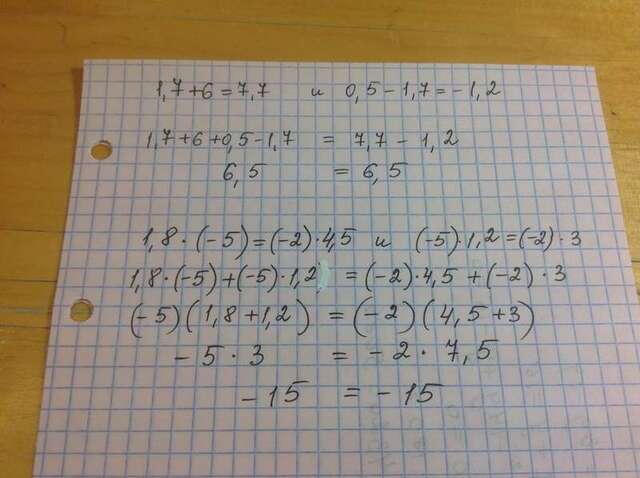 1,7+6=7,7 и 0,5-1,7=-1,2
1,7+6+0,5-1,7 = 7,7 - 1,2
6,5 = 6,5
1,8·(-5)=(-2)·4,5 и (-5)·1,2=(-2)·3
1,8·(-5)+(-5)·1,2 =(-2)·4,5+(-2)·3
(-5)(1,8+1,2) =(-2)(4,5+3)
-5·3 = -2·7,5
-15 = -15